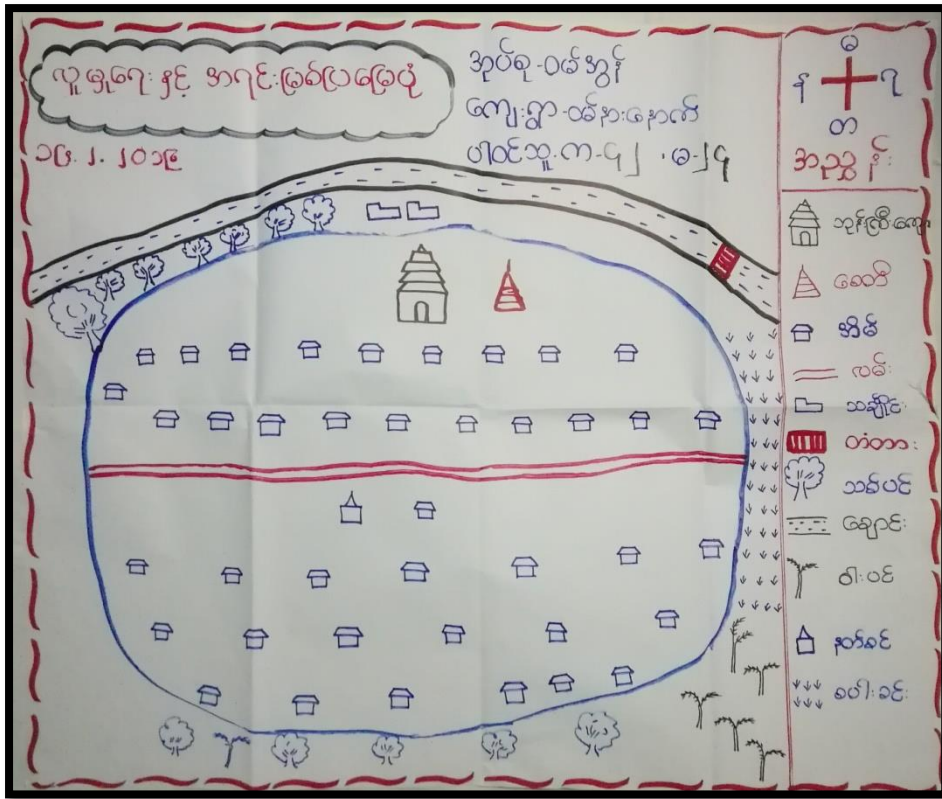 လူမှုရေးနှင့် အရင်းမြစ်ပြမြေပုံ
အုပ်စု-ဝမ်အွန်
ကျေးရွာ-ဝမ်နားနောက်
ပါဝင်သူ-က-၄၂ ၊ မ-၂၄
မ
န ရ
တ
အညွှန်း
ဘုန်းကြီးကျော
စေတီ
အိမ်
လမ်း
သချိုင်း
တံတား
သစ်ပင်
ချောင်း
ဝါးပင်
နတ်စင်
စပါးခင်း